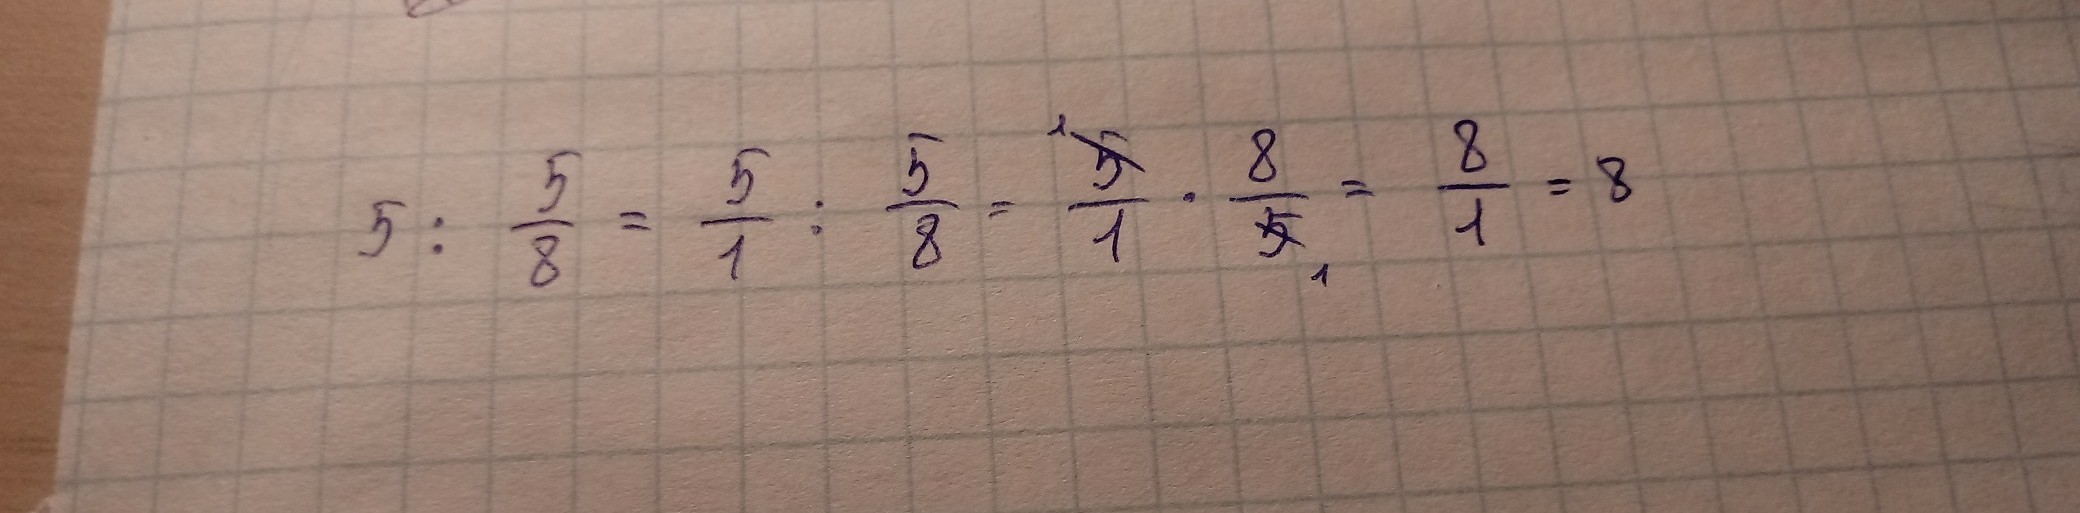 5 : 5/8 = 5/1 : 5/8 = ¹5/1 · 8/5₁ = 8/1 = 8